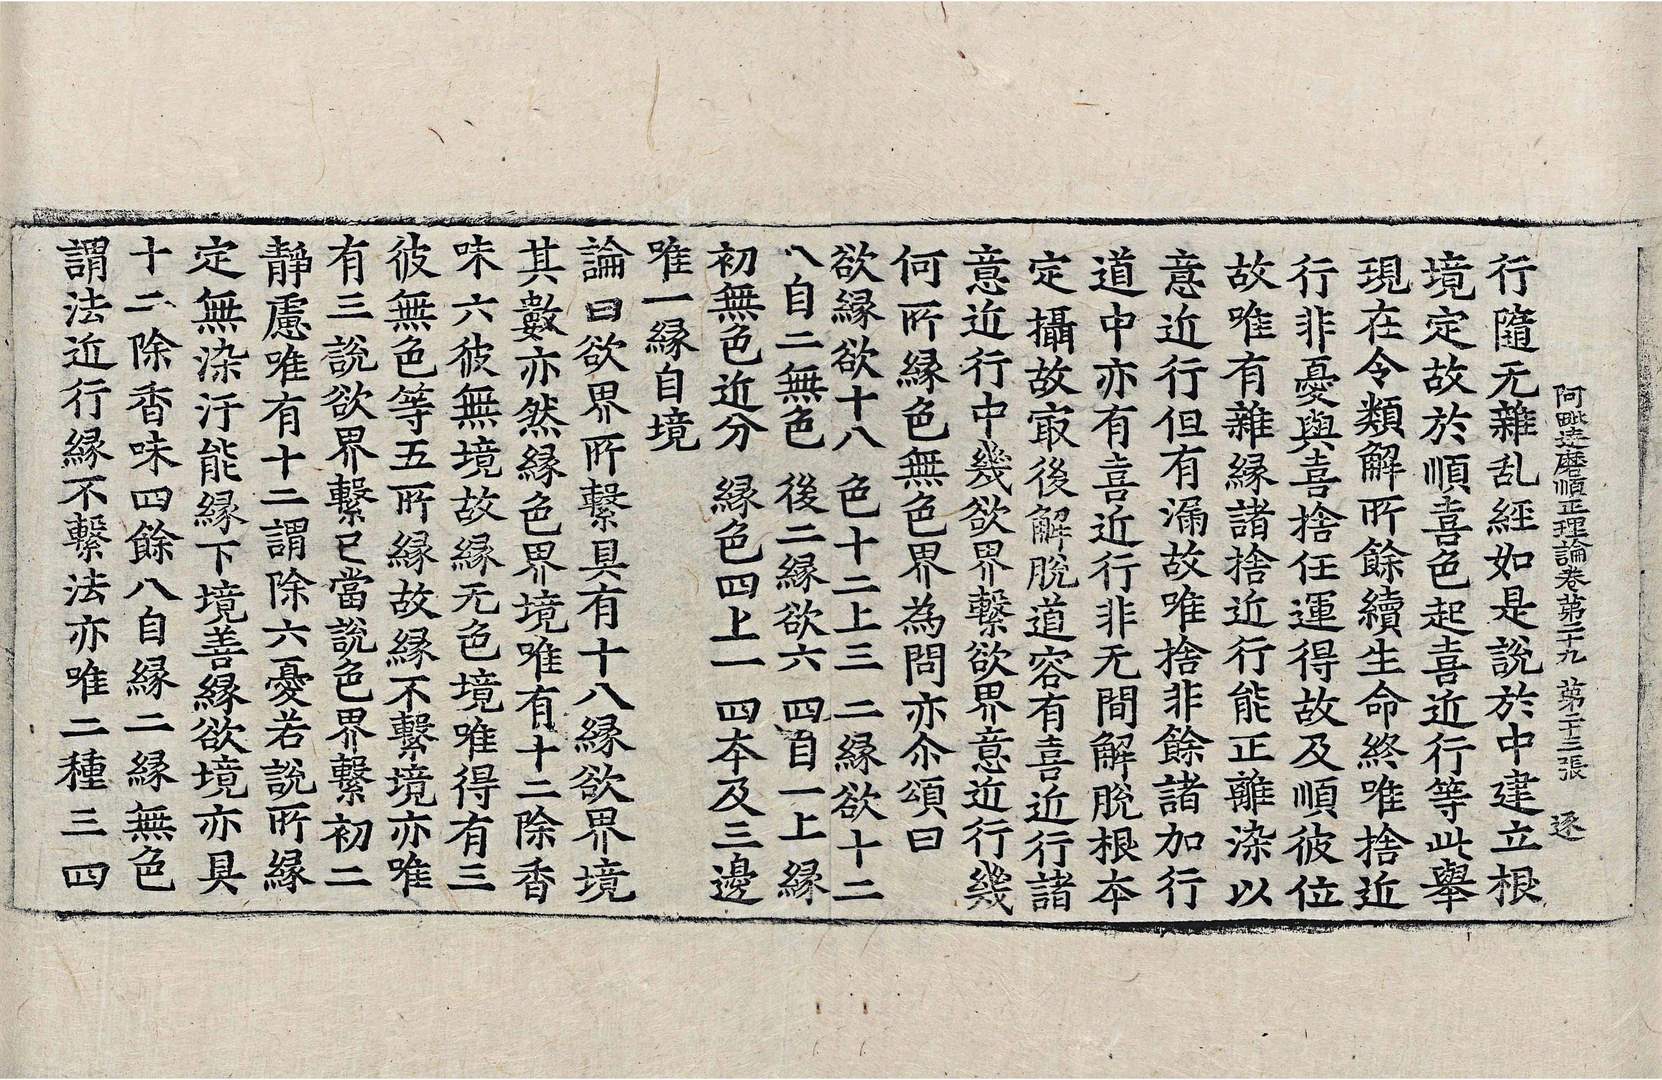 阿毗達磨順正理論卷第二十九　第二十三張　逐
行隨无雜乱經如是說於中建立根
境定故於順喜色起喜近行等此舉
現在令類解所餘續生命終唯捨近
行非憂與喜捨任運得故及順彼位
故唯有雜緣諸捨近行能正離染以
意近行但有漏故唯捨非餘諸加行
道中亦有喜近行非无間解脫根本
定攝故㝡後解脫道容有喜近行諸
意近行中幾欲界繫欲界意近行幾
何所緣色無色界為問亦尒頌曰
欲緣欲十八　色十二上三　二緣欲十二
八自二無色　後二緣欲六　四自一上緣
初無色近分　緣色四上一　四本及三邊
唯一緣自境
論曰欲界所繫具有十八緣欲界境
其數亦然緣色界境唯有十二除香
味六彼無境故緣无色境唯得有三
彼無色等五所緣故緣不繫境亦唯
有三說欲界繫已當說色界繫初二
靜慮唯有十二謂除六憂若說所緣
定無染汙能緣下境善緣欲境亦具
十二除香味四餘八自緣二緣無色
謂法近行緣不繫法亦唯二種三四